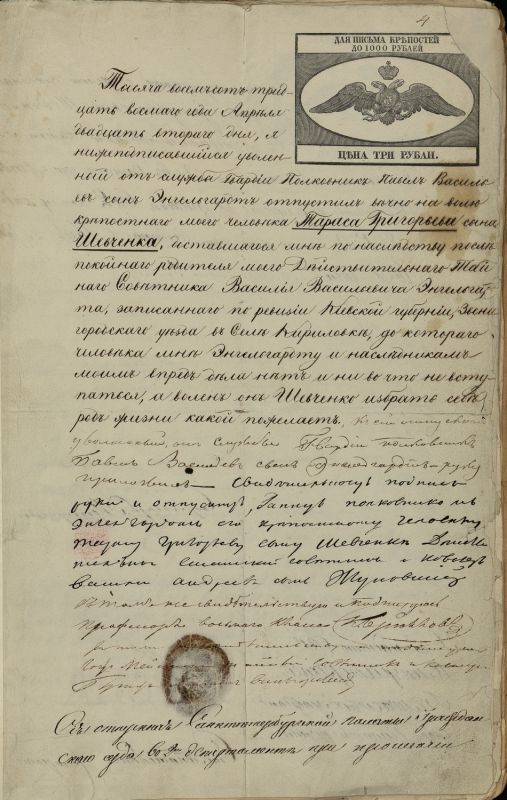 4
ДЛЯ ПИСЬМА КРѢПОСТЕЙ
ДО 1000 РУБЛЕЙ
ЦѢНА ТРИ РУБЛИ.
Тысяча восемьсотъ трид-
цать восмаго года Апрѣля
двадцать втораго дня, я
нижеподписавшійся уволен-
ный отъ службы Гвардіи Полковникъ Павелъ Василь-
евъ сынъ Энгельгартъ отпустилъ вѣчно на волю
крѣпостнаго моего человѣка Тараса Григорьева сына
Шевченка, доставшагося мнѣ по наслѣдству послѣ
покойнаго родителя моего Дѣйствительнаго Тай-
наго Совѣтника Василія Васильевича Энгельгар-
та, записаннаго по ревизіи Кіевской губерніи, Звени-
городскаго уѣзда въ Селѣ Кириловкѣ, до котораго
человѣка мнѣ Энгельгардту и наслѣдникамъ
моимъ впредь дѣла нѣтъ и ни во что не всту-
паться, а воленъ онъ Шевченко избрать себѣ
родъ жизни какой пожелаетъ. Къ сей отпускной
уволенный отъ службы Гвардіи полковникъ
Павелъ Васильевъ сынъ Энгельгардтъ руку
приложилъ
руки и отпускъ Гвардіи полковникомъ
Энгельгардтомъ его крѣпостному человѣку
Тарасу Григорьеву сыну Шевченкѣ
совѣтникъ и кавалеръ
Андреевъ сынъ Жуковскій
Въ томъ же свидѣтельствую и подписуюсь
Профессоръ восьмаго класса К Брюлловъ
въ томъ
совѣтникъ и кавалеръ
Графъ Віельгорскій
Санктпетербургской палаты Граждан-
скаго суда во 2 департаментъ при прошеніи